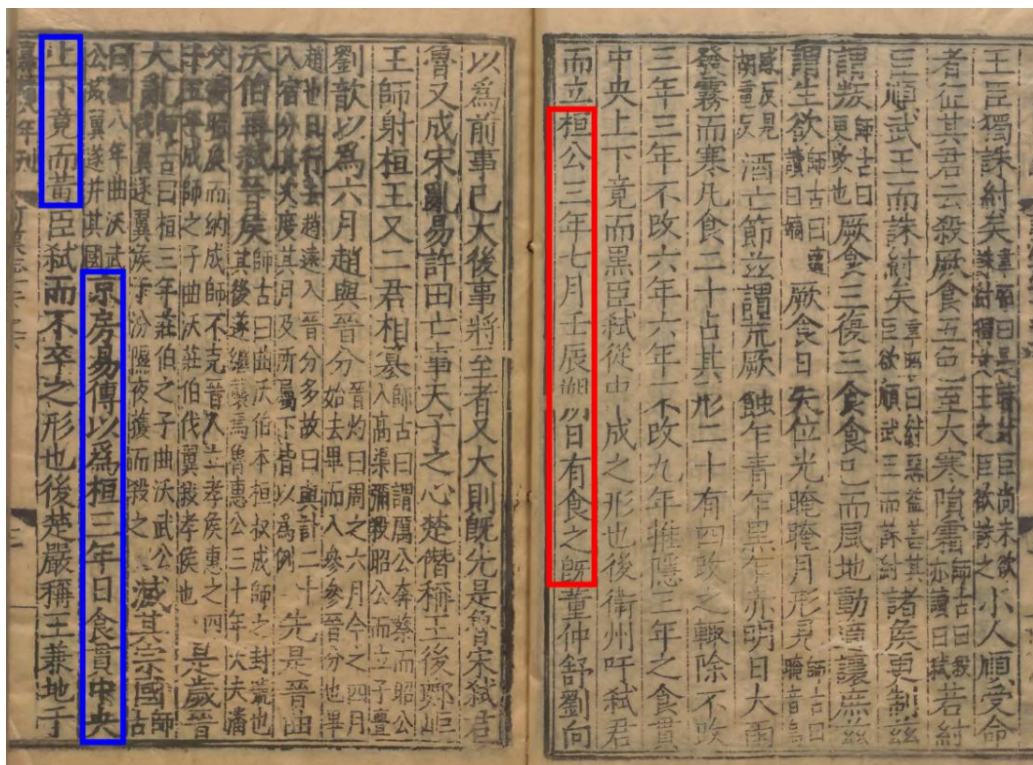 王臣獨誅紂矣韋昭曰是時紂臣尚未欲誅紂獨武王之臣欲誅之小人順受命
者征其君云殺厥食五色至大寒隕霜師古曰殺亦讀曰弒若紂
臣順武王而誅紂矣韋昭曰紂惡益甚其臣欲順武王而誅紂諸侯更制茲
謂叛師古曰更改也厥食三復三食食已而風地動適讓庶茲
謂生欲師古曰適讀曰嫡厥食日失位光晻晻月形見師古曰晻音烏
感反見胡電反酒亡節茲謂荒厥蝕乍青乍黑乍赤明日大雨
發霧而寒凡食二十占其形二十有四改之輒除不改
三年三年不改六年六年不改九年推隱三年之食貫
中央上下竟而黑臣弒從中成之形也後衛州吁弒君
而立桓公三年七月壬辰朔日有食之既董仲舒劉向
以爲前事已大後事將至者又大則既先是魯宋弒君
魯又成宋亂易許田亡事天子之心楚僭稱王後鄭岠
王師射桓王又二君相簒師古曰謂厲公奔蔡而昭公入高渠彌殺昭公而立子亹
劉歆以爲六月趙與晉分晉灼曰周之六月今之四月始去畢而入參參晉分也畢
趙也日行去趙遠入晉分多故曰與計二十八宿分其次度其月及所屬下皆以爲例先是晉曲
沃伯再弒晉侯師古曰曲沃伯本桓叔成師之封號也其後遂繼襲焉魯惠公三十年大夫潘
父弒昭侯而納成師不克晉人立孝侯惠之四十五年成師之子曲沃莊伯伐翼弒孝侯也是歲晉
大亂師古曰桓三年莊伯之子曲沃武公伐翼逐翼侯于汾隰夜獲而殺之滅其宗國師古
曰桓八年曲沃武公滅翼遂并其國京房易傳以爲桓三年日食貫中央
上下竟而黃臣弒而不卒之形也後楚嚴稱王兼地千